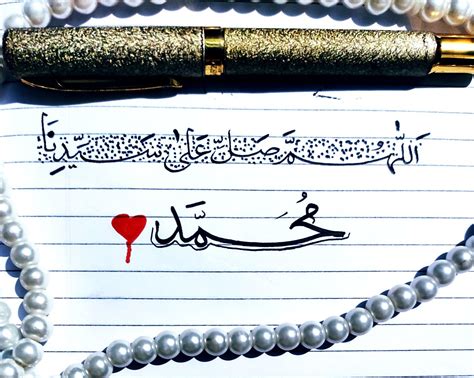 اَللّٰهُمَّ صَلِّ عَلٰى سَيِّدِنَا
مُحَمَّد